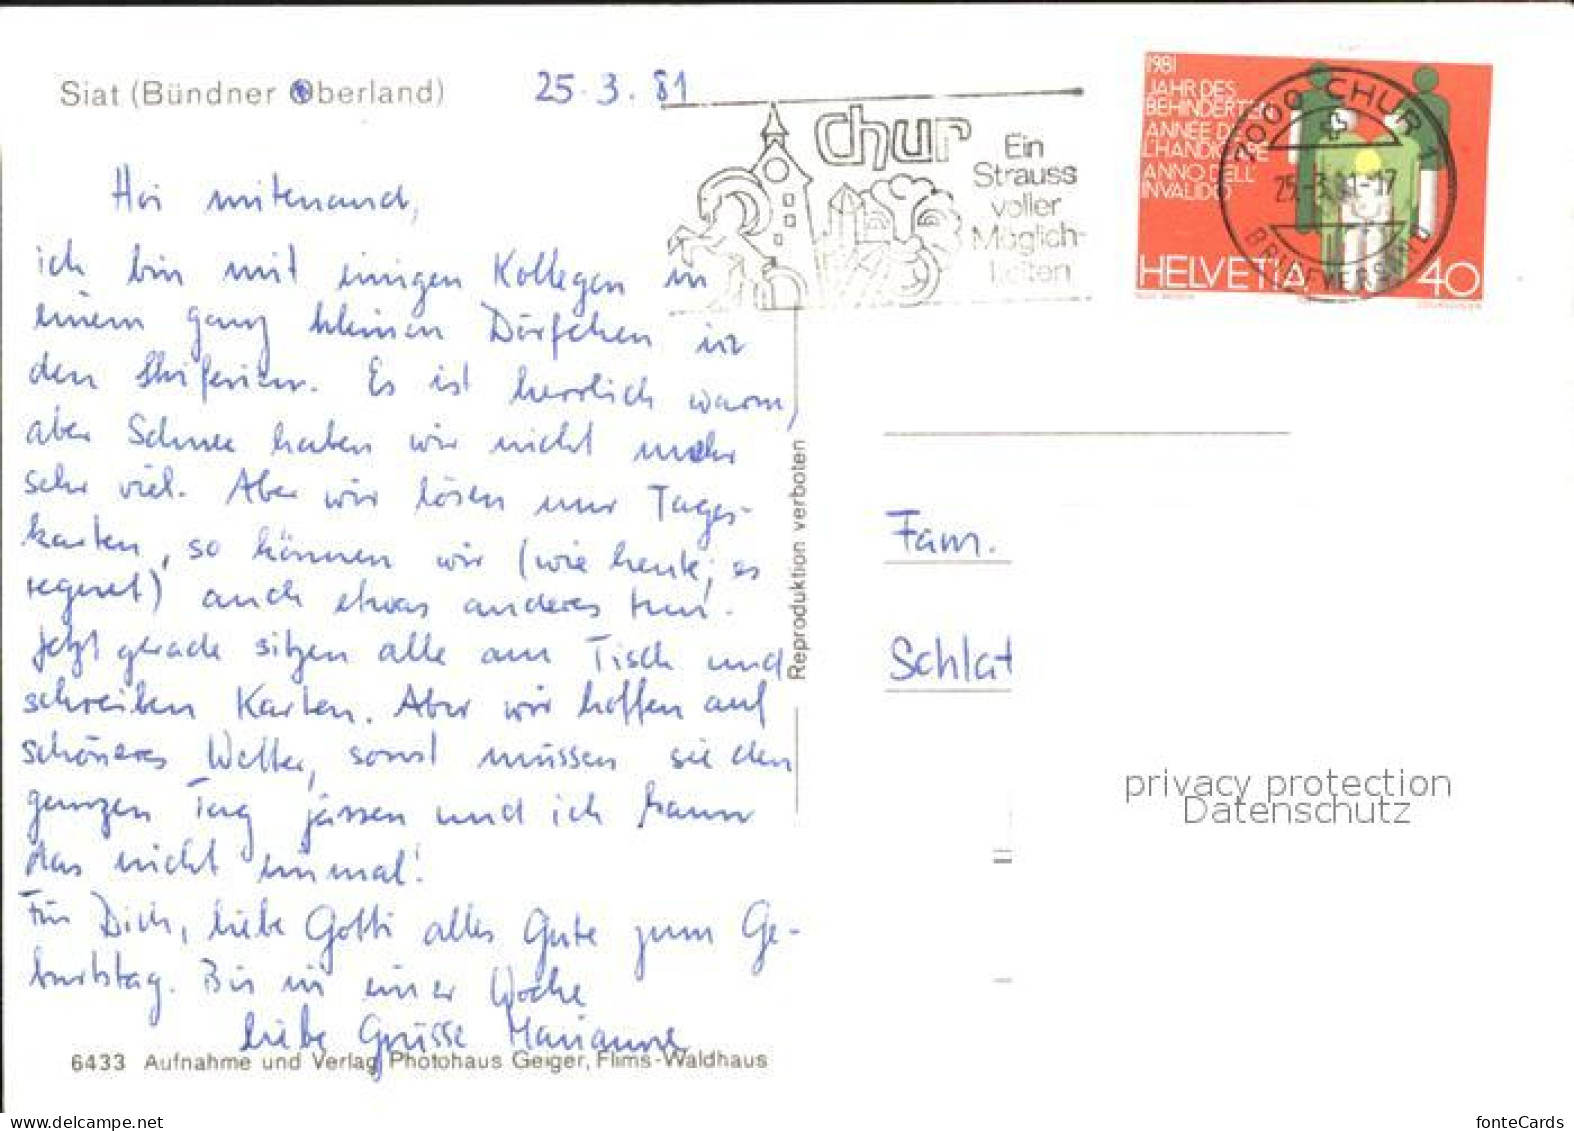 Siat (Bündner Oberland)
25.3.81
Hoi mitenand,
ich bin mit einigen Kollegen in
einem ganz kleinen Dörfchen in
den Skiferien. Es ist herrlich warm,
aber Schnee haben wir nicht mehr
sehr viel. Aber wir lösen nur Tages-
karten, so können wir (wie heute, es
regnet) auch etwas anderes tun.
Jetzt gerade sitzen alle am Tisch und
schreiben Karten. Aber wir hoffen auf
schöneres Wetter, sonst müssen sie den
ganzen Tag jassen und ich kann
das nicht einmal!
Für Dich, liebe Gotti alles Gute zum Ge-
burtstag. Bis in einer Woche
liebe Grüsse Marianne
6433 Aufnahme und Verlag Photohaus Geiger, Flims-Waldhaus
Reproduktion verboten
chur
Ein
Strauss
voller
Möglich-
keiten
1981
JAHR DES
BEHINDERTEN
ANNÉE DE
L'HANDICAPÉ
ANNO DELL'
INVALIDO
HELVETIA 40
7000 CHUR 1
25.-3.81-17
BRIEFVERSAND
Fam.
Schlat
privacy protection
Datenschutz
fonteCards